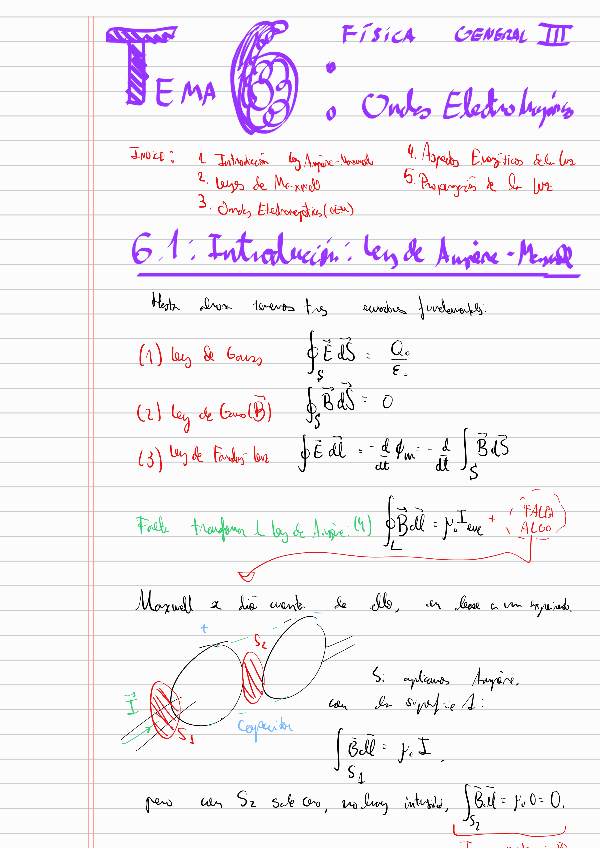 FÍSICA GENERAL III
TEMA 6:
Ondas Electromagnéticas
ÍNDICE: 1. Introducción Ley Ampère-Maxwell
2. Leyes de Maxwell
3. Ondas Electromagnéticas
4. Aspectos Energéticos de la luz
5. Propagación de la luz
6.1: Introducción: Ley de Ampère-Maxwell
Hasta ahora tenemos tres ecuaciones fundamentales:
(1) Ley de Gauss ∮_S E⃗ dS⃗ = Q₀/ε₀
(2) Ley de Gauss (B⃗) ∮_S B⃗ dS⃗ = 0
(3) Ley de Faraday-Lenz ∮ E⃗ dl⃗ = -d/dt ϕm = -d/dt ∫_S B⃗ dS⃗
Falta transformar la Ley de Ampère: (4) ∮_L B⃗ dl⃗ = μ₀ I + FALTA ALGO
Maxwell se dió cuenta de ello, en base a un experimento.
+ S₂
I⃗ S₁
- Capacitor
Si aplicamos Ampère,
con la superficie 1:
∫_S₁ B⃗ dl⃗ = μ₀ I,
pero con S₂ sale cero, no hay intensidad, ∫_S₂ B⃗ dl⃗ = μ₀ 0 = 0.